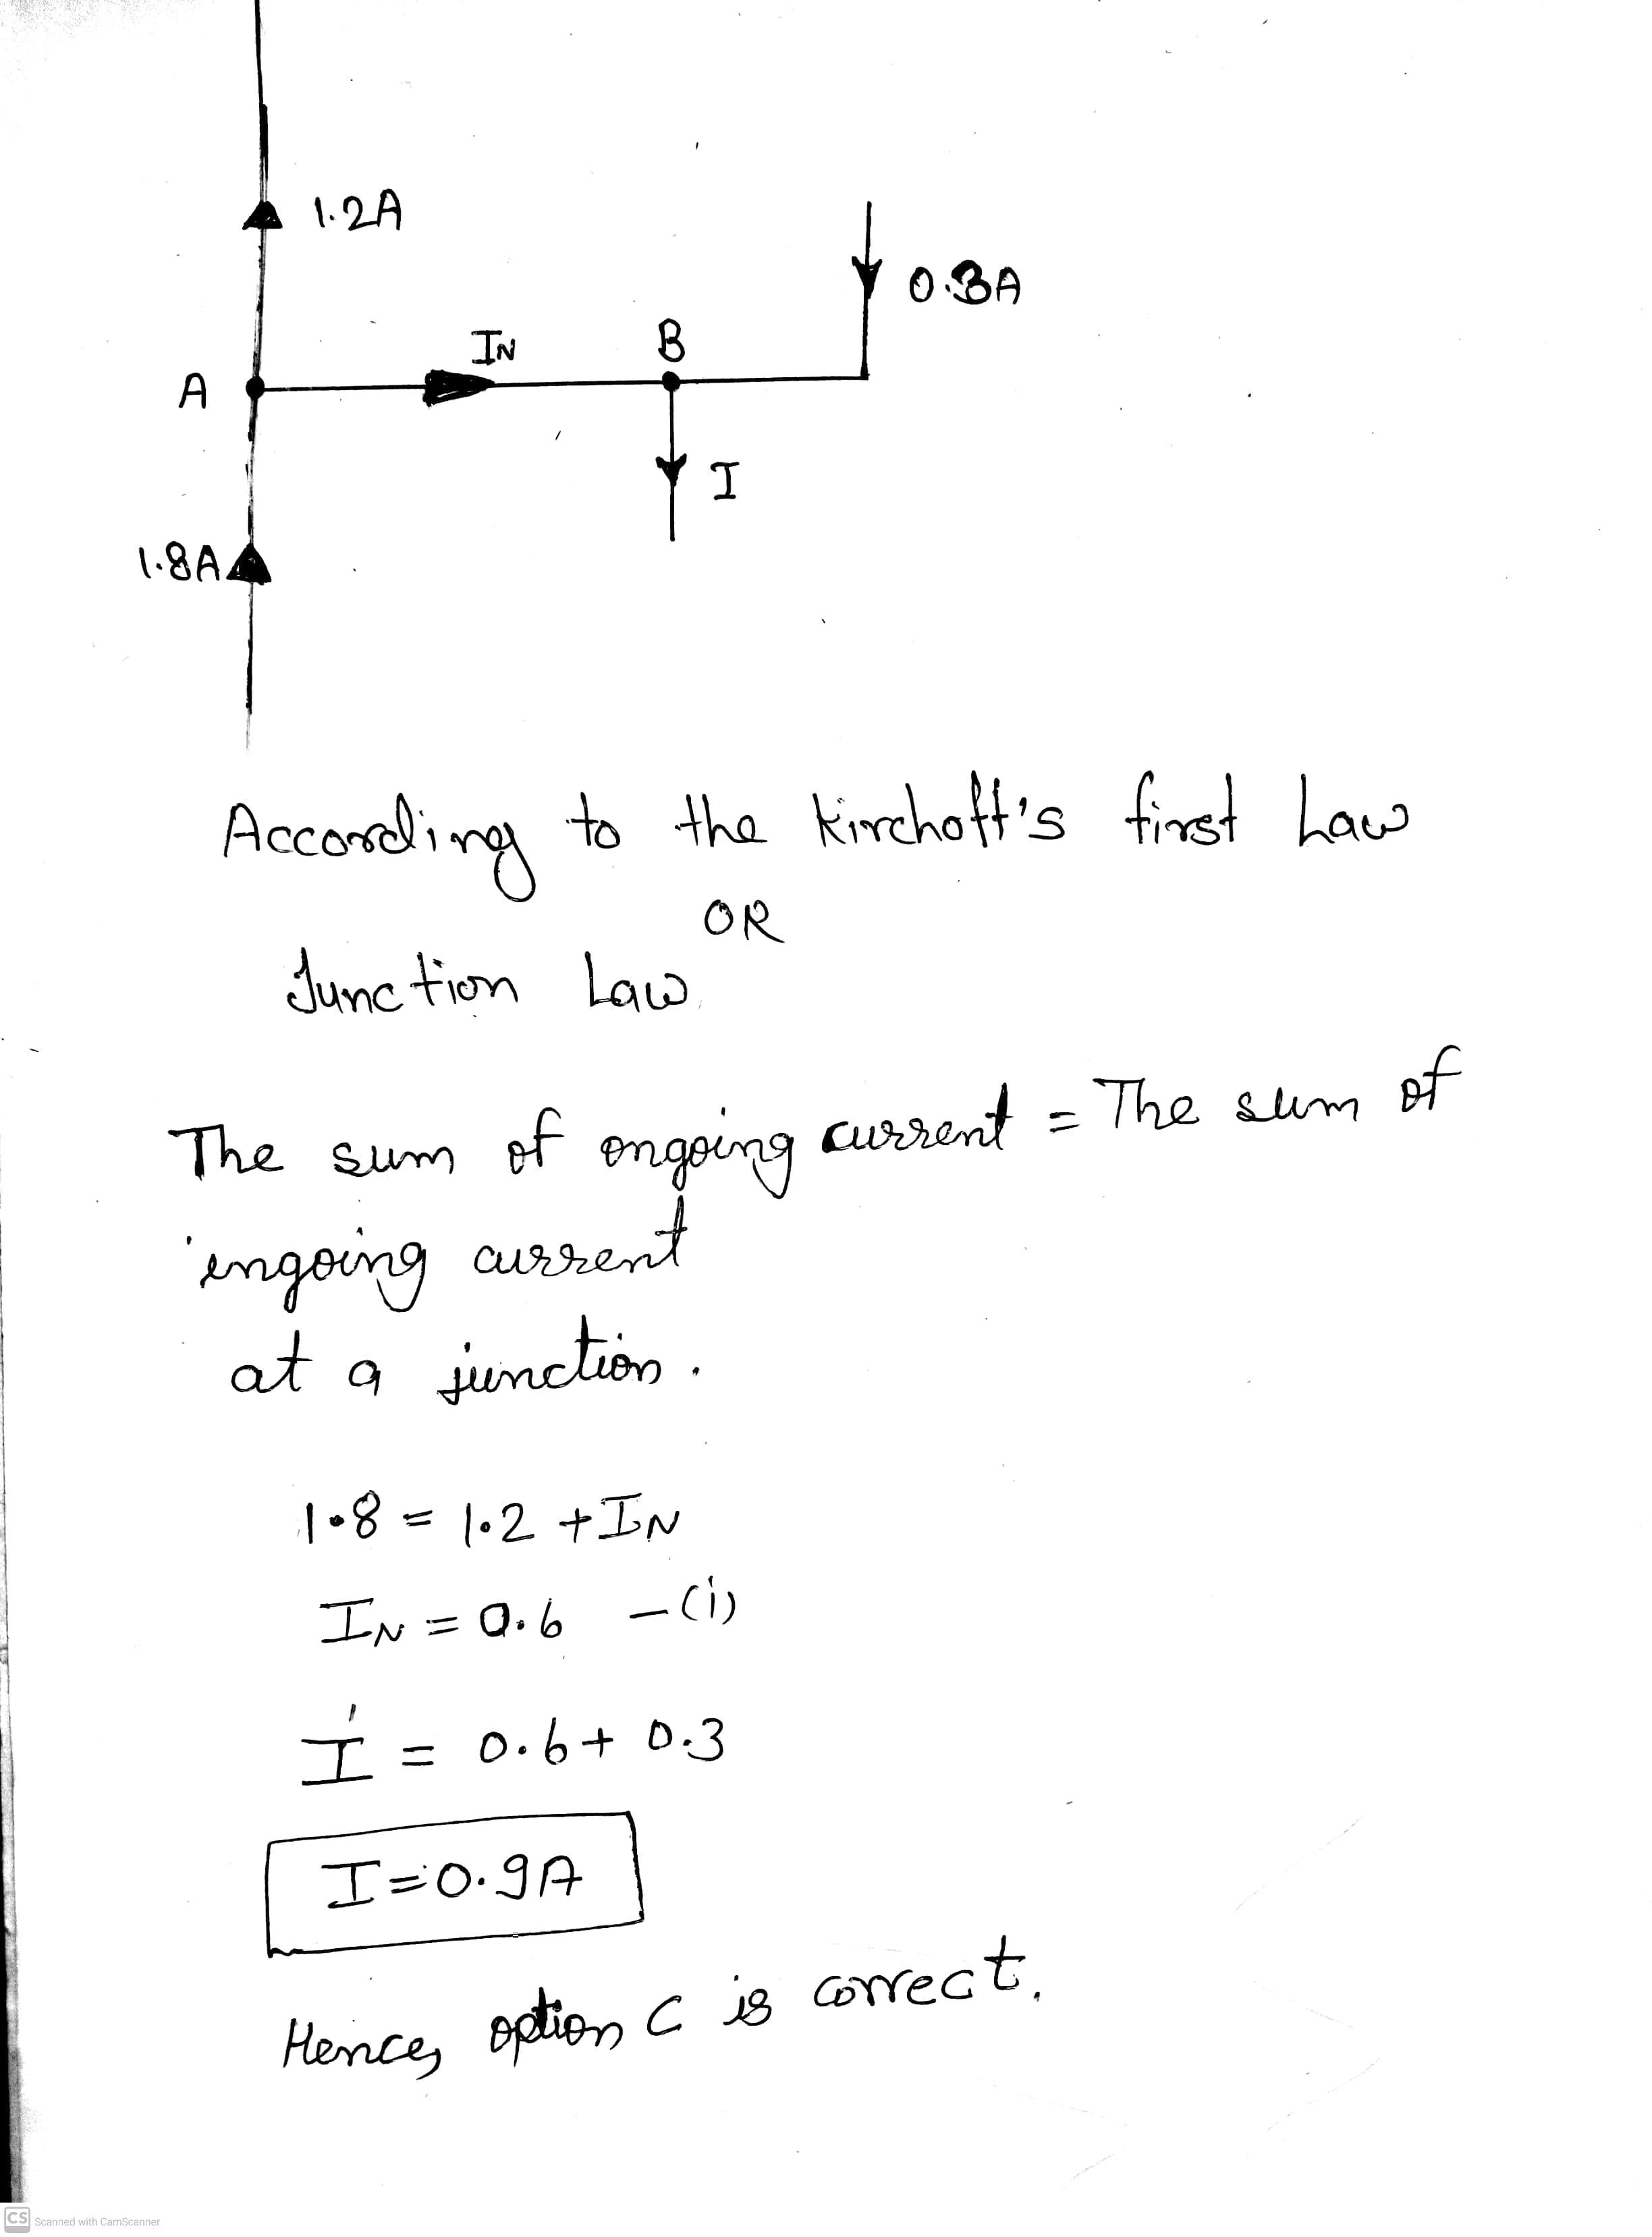 1.2A
0.3A
IN
B
A
I
1.8A
According to the Kirchoff's first Law
OR
Junction Law
The sum of ongoing current = The sum of
ingoing current
at a junction.
1.8 = 1.2 + IN
IN = 0.6 -(i)
I = 0.6 + 0.3
I = 0.9A
Hence, option C is correct.
CS Scanned with CamScanner